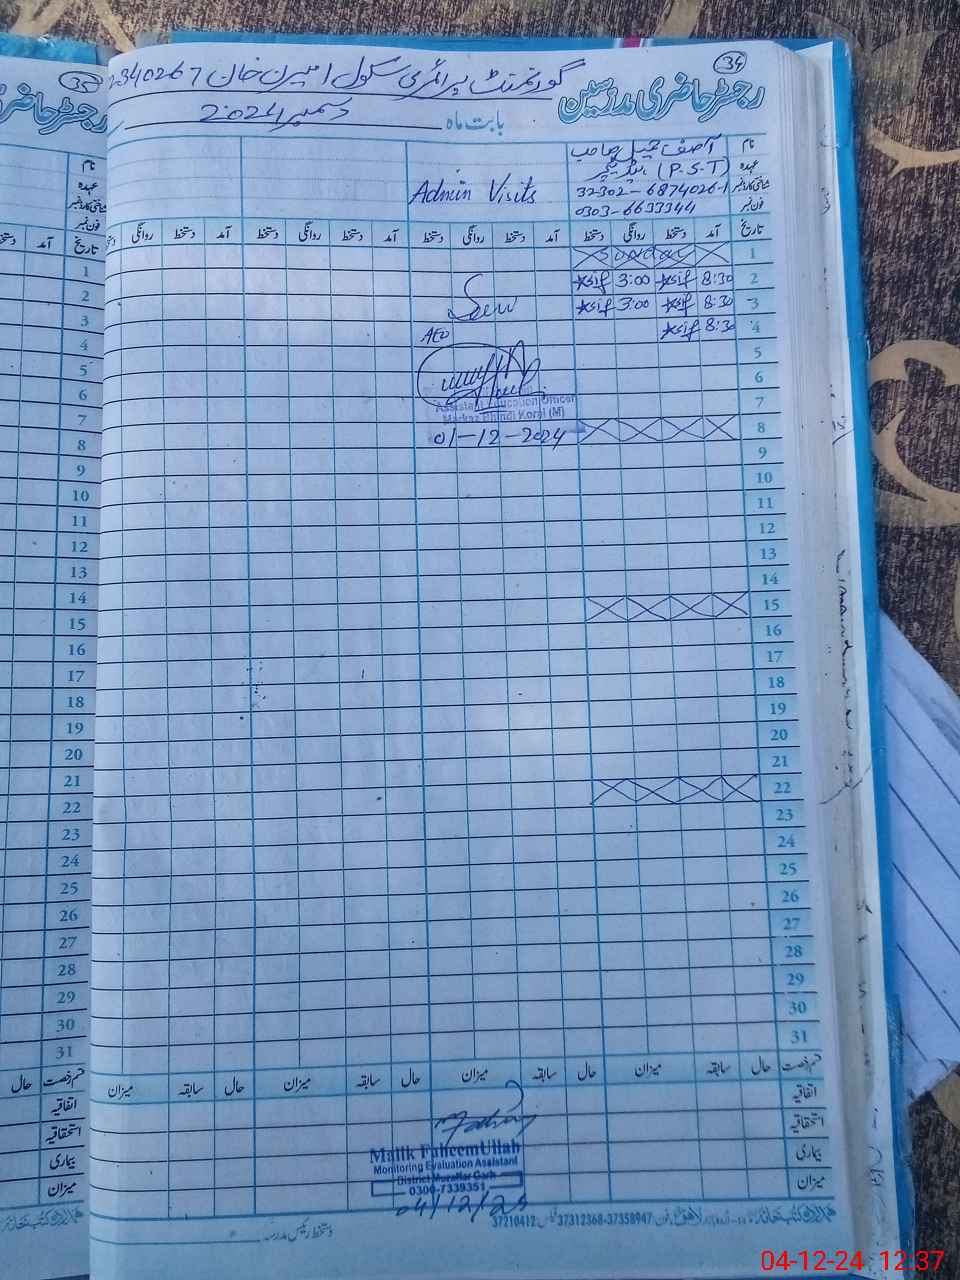 34
رجسٹر حاضری مدرسین
گورنمنٹ پرائمری سکول امیرن خان
بابت ماہ دسمبر 2024
نام آصف جمیل صاحب
عہدہ (P.S.T)
شناختی کارڈ نمبر 32302-6874026-1
فون نمبر 0303-6633344
Admin Visits
تاریخ آمد دستخط روانگی دستخط آمد دستخط روانگی دستخط آمد دستخط روانگی دستخط آمد دستخط روانگی
1 Sunday
2 8:30 Asif 3:00 Asif
3 8:30 Asif 3:00 Asif
Seen
4 8:30 Asif
AEO
5
6
7
Assistant Education Officer
Markaz Bhindi Korai (M)
01-12-2024
8
9
10
11
12
13
14
15
16
17
18
19
20
21
22
23
24
25
26
27
28
29
30
31
قسم رخصت حال سابقہ میزان حال سابقہ میزان حال سابقہ میزان حال سابقہ میزان
اتفاقیہ
استحقاقیہ
بیماری
میزان
Malik FaheemUllah
Monitoring Evaluation Assistant
District Muzaffar Garh
0306-7339351
04/12/24
فون: 37358947-37312368 فیکس: 37210412
دستخط رئیس مدرسہ
35
رجسٹر حاضری
نام
عہدہ
شناختی کارڈ نمبر
فون نمبر
تاریخ آمد دستخط
1
2
3
4
5
6
7
8
9
10
11
12
13
14
15
16
17
18
19
20
21
22
23
24
25
26
27
28
29
30
31
قسم رخصت حال
اتفاقیہ
استحقاقیہ
بیماری
میزان
04-12-24 12:37